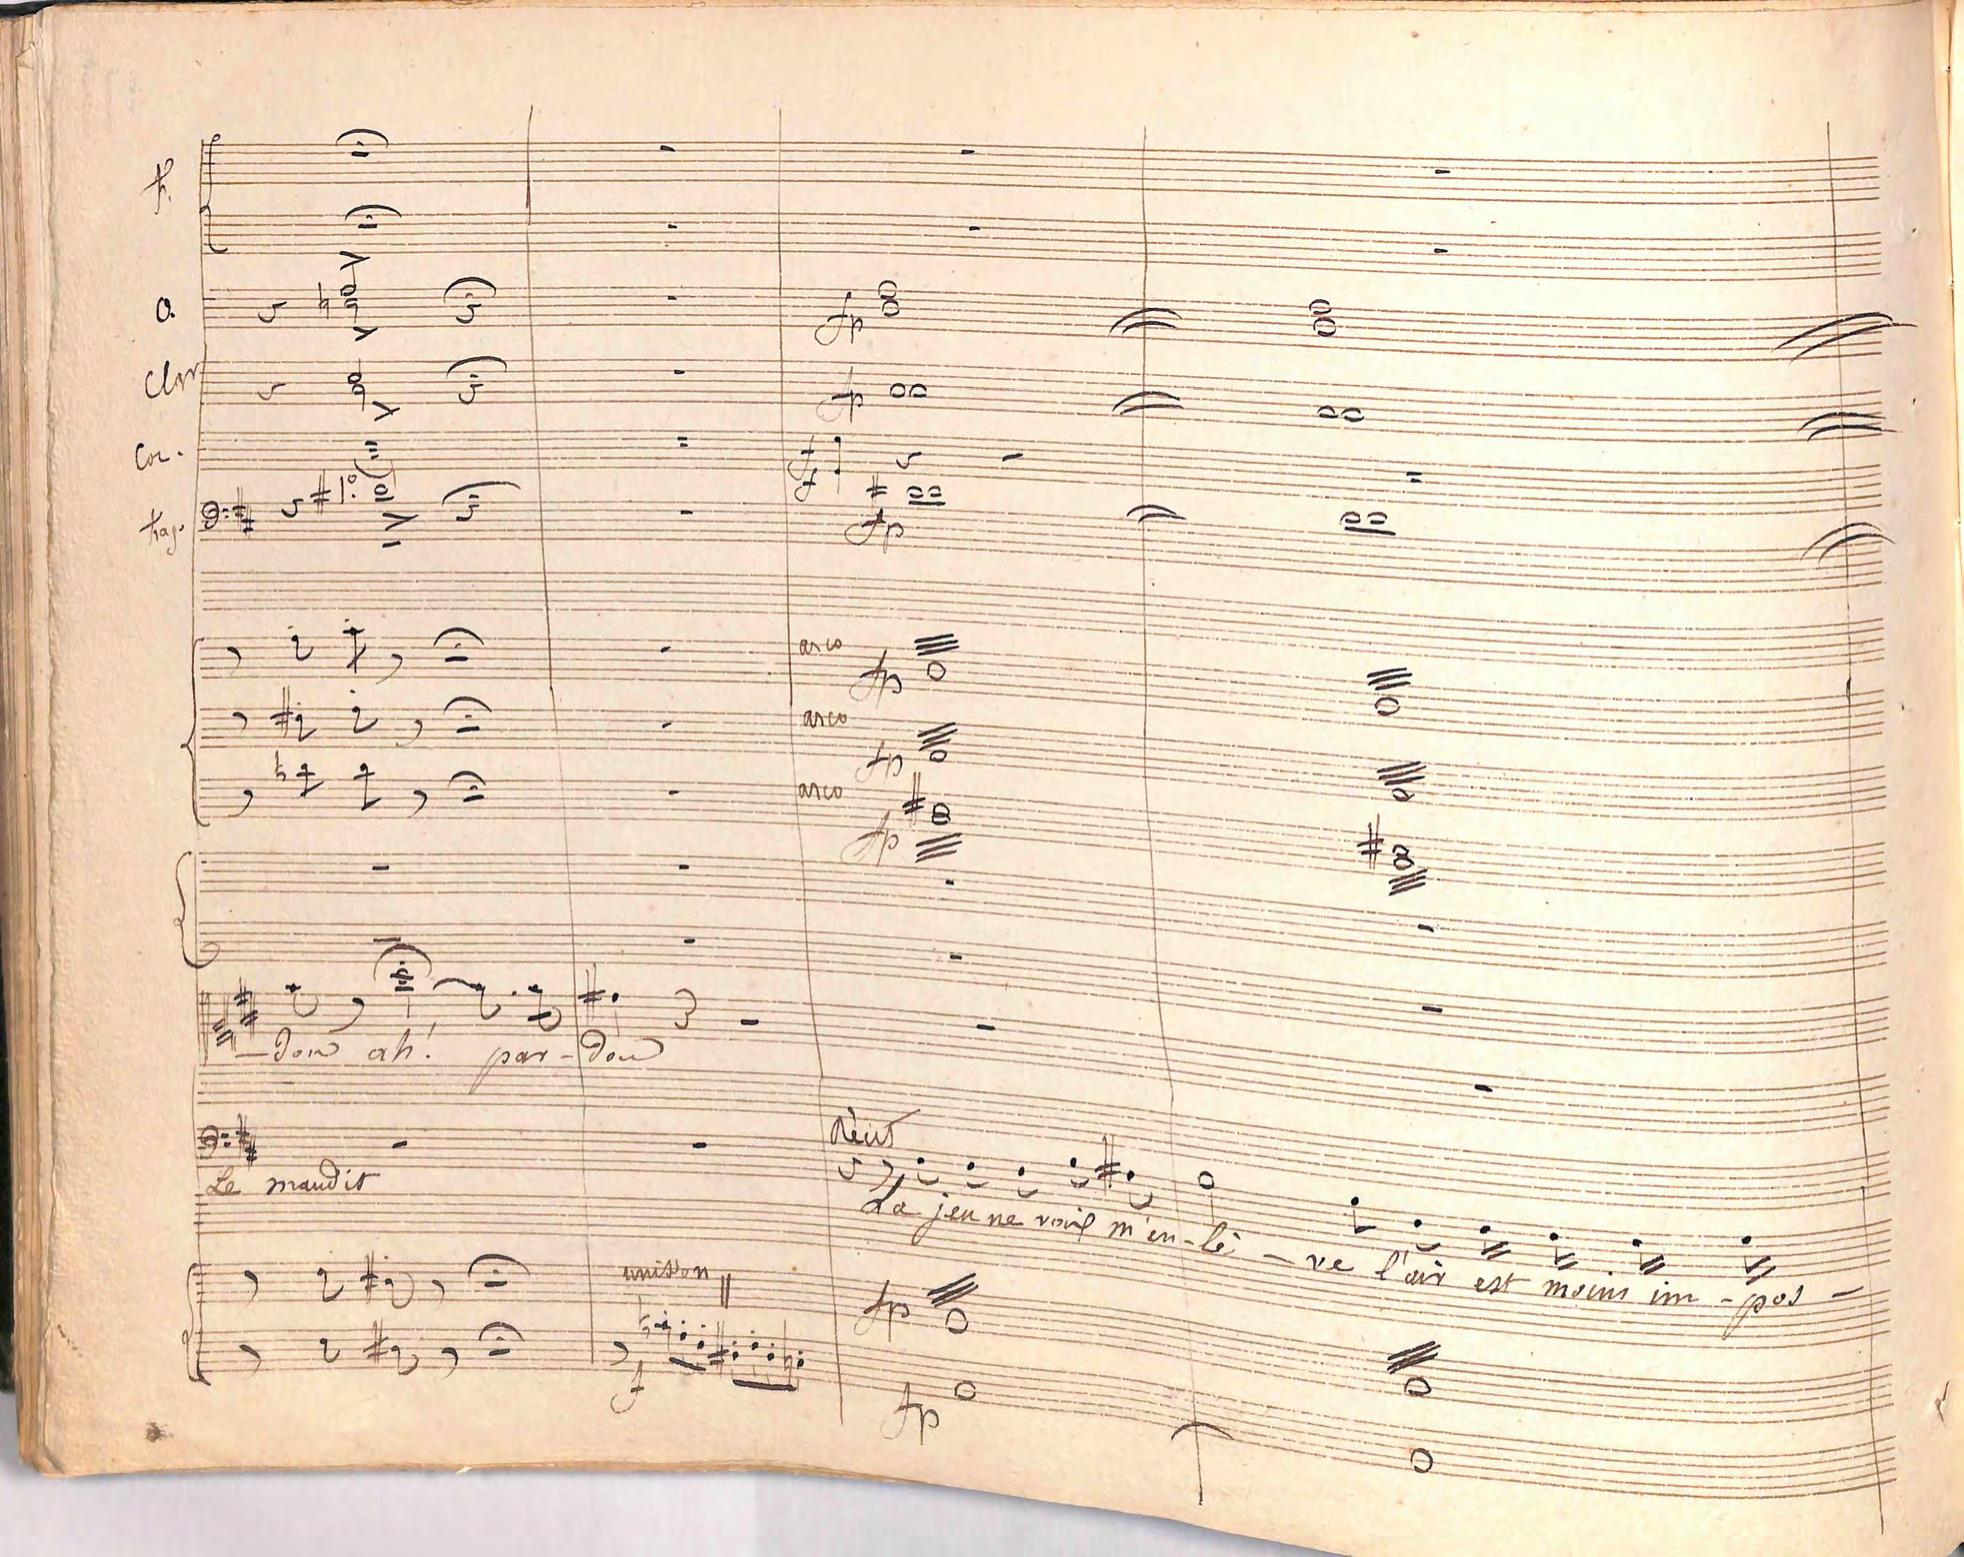 fl.
O.
Clar
Cor.
fag.
fp
fp
f
f
fp
arco
fp
arco
fp
arco
fp
-don ah! par-don
Récit
Le maudit
La jeune voix m'en-lè-ve l'air est moins im-pos-
unisson
fp
f
fp